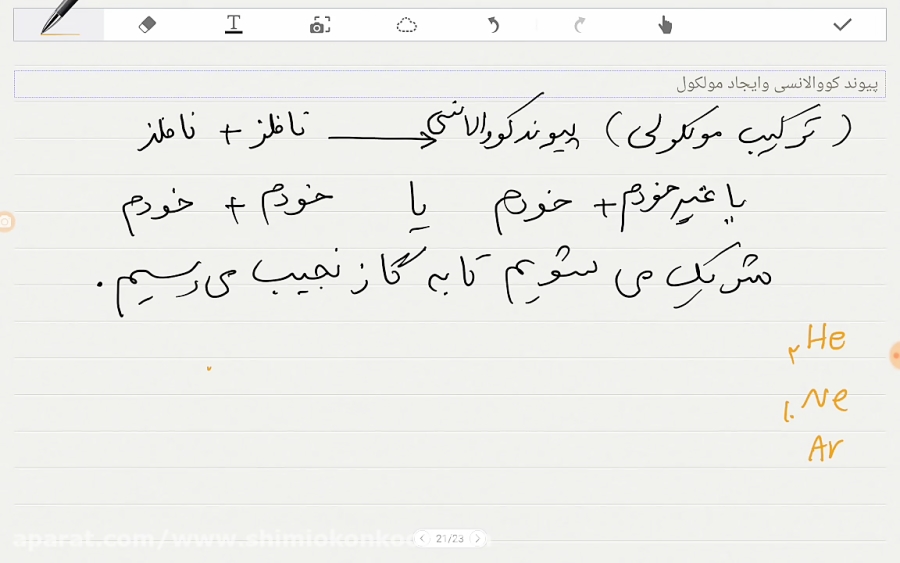 T
پیوند کووالانسی وایجاد مولکول
نافلز + نافلز ⟶ پیوند کووالانسی (ترکیب مولکولی)
خودم + خودم یا خودم + غیر خودم یا
شریک می شویم تا به گاز نجیب می رسیم.
۲He
۱۰Ne
Ar
21/23
aparat.com/www.shimiokonko